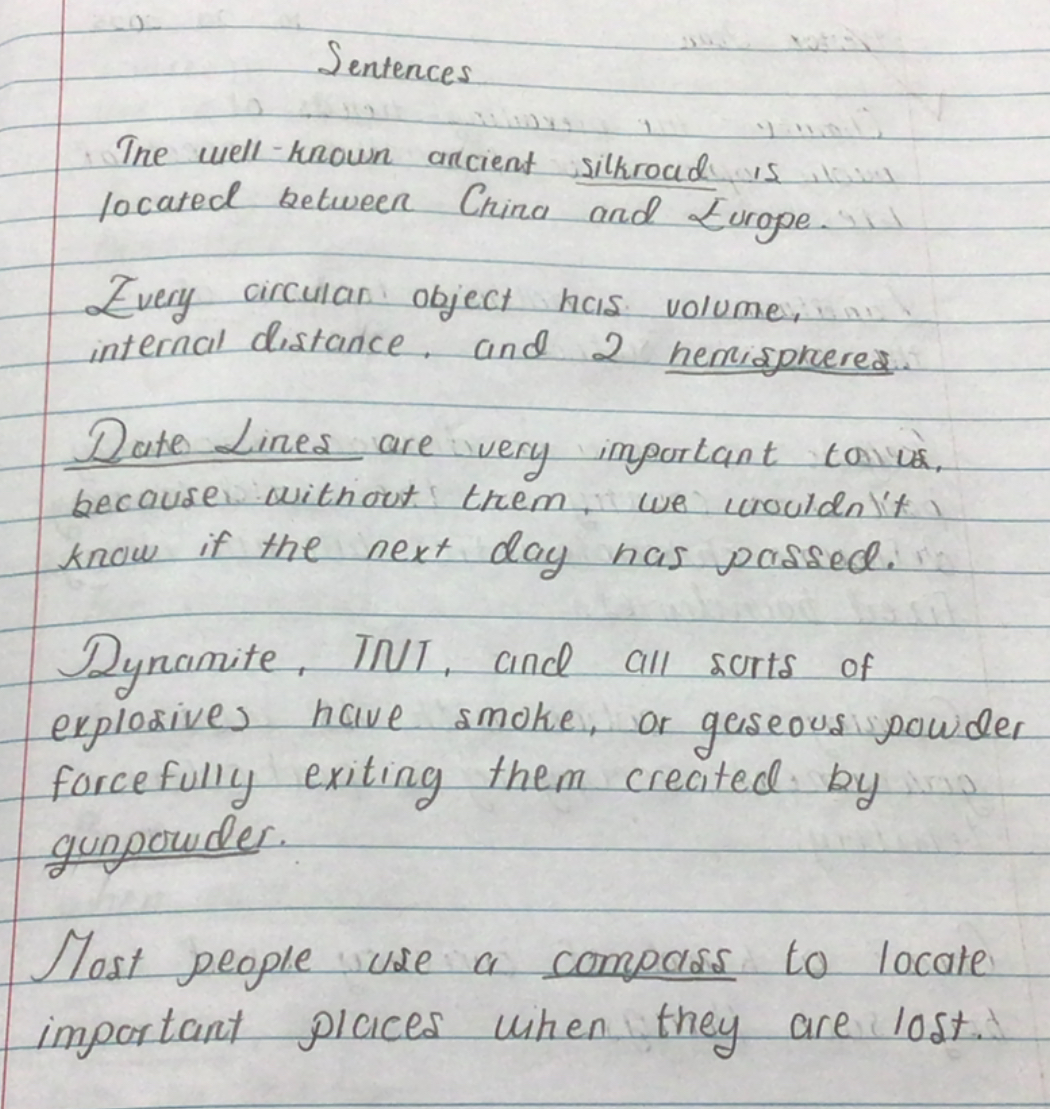 Sentences
The well-known ancient silkroad is
located between China and Europe.
Every circular object has volume,
internal distance, and 2 hemispheres.
Date Lines are very important to us,
because without them, we wouldn't
know if the next day has passed.
Dynamite, TNT, and all sorts of
explosives have smoke, or gaseous powder
forcefully exiting them created by
gunpowder.
Most people use a compass to locate
important places when they are lost.